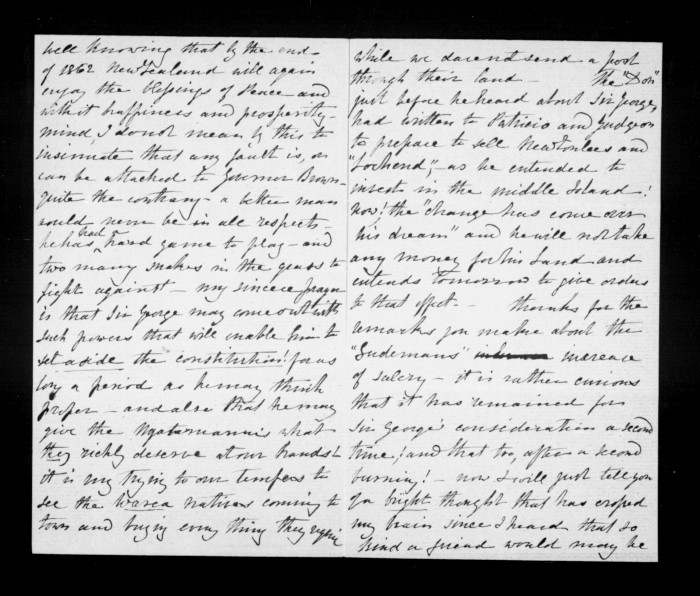 well knowing that by the end
of 1862 New Zealand will again
enjoy the blessings of Peace and
with it happiness and prosperity -
mind, I do not mean by this to
insinuate that any fault is, or
can be attached to Governor Browne -
quite the contrary - a better man
could never be in all respects -
he has had a hard game to play - and
two many snakes in the grass to
fight against - my sincere prayer
is that Sir George may come out with
such powers that will enable him to
set aside the constitution! for as
long a period as he may think
proper - and also that he may
give the Ngatiruanuis what
they richly deserve at our hands!
it is very trying to our tempers to
see the Warea natives coming to
town and buying every thing they require
while we dare not send a post
through their land - The "Don"
just before he heard about Sir George,
had written to Patricio and Gudgeon
to prepare to sell Newtonlees and
"Lochend", - as he intended to
invest in the middle Island!
now! the "change has come over
his dream" and he will not take
any money for his Land and
intends tomorrow to give orders
to that effect - thanks for the
remarks you make about the
"Gudemans" increase
of salary - it is rather curious
that it has remained for
Sir George's consideration a second
time! and that too, after a second
burning! - now I will just tell you
of a bright thought that has crossed
my brain since I heard that so
kind a friend would may be